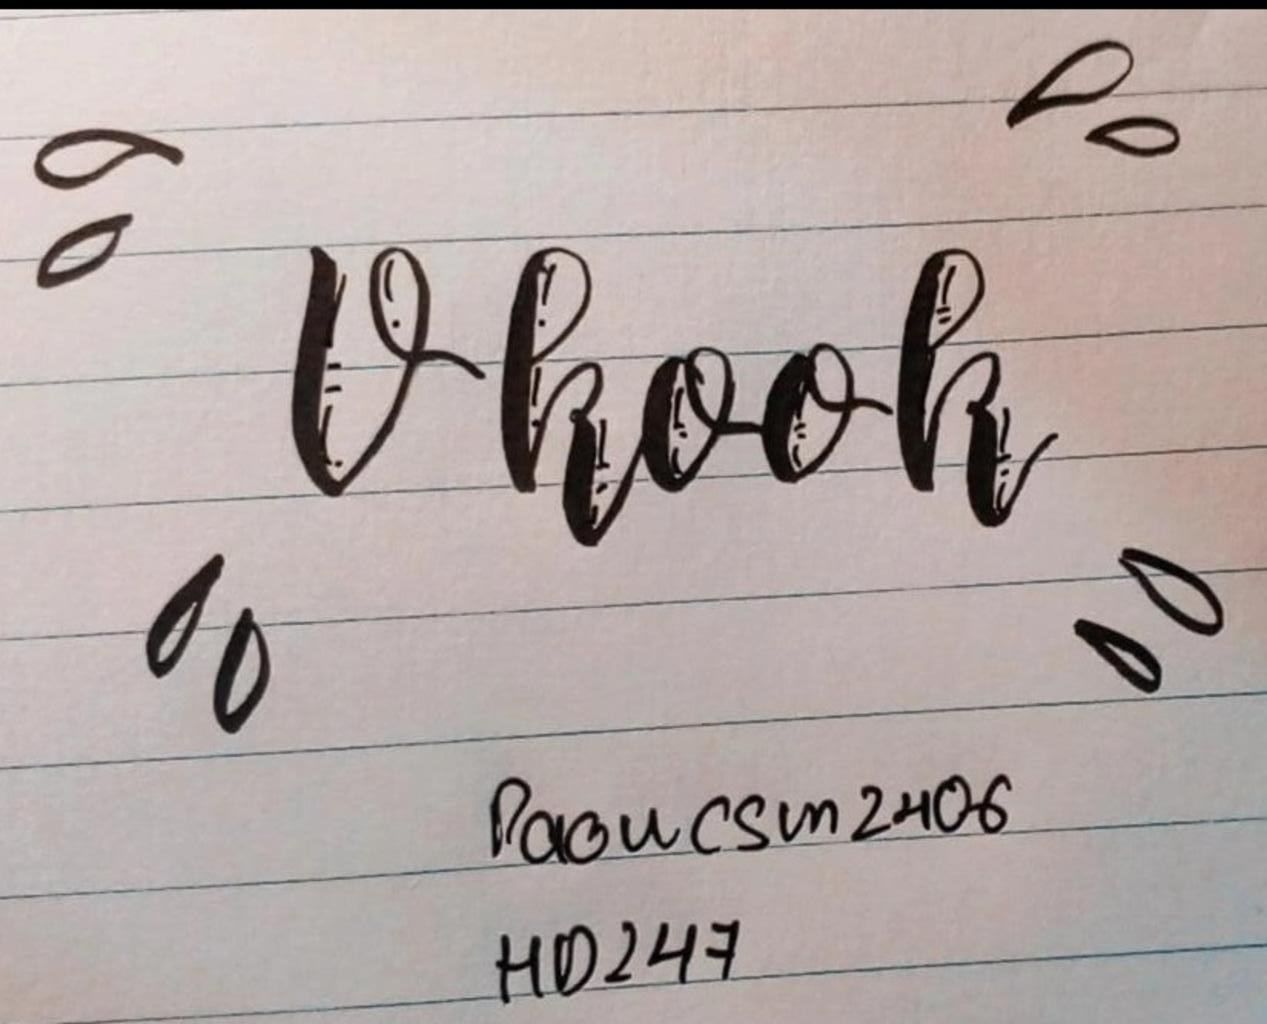 Vkook
PaouCSun2406
HD247